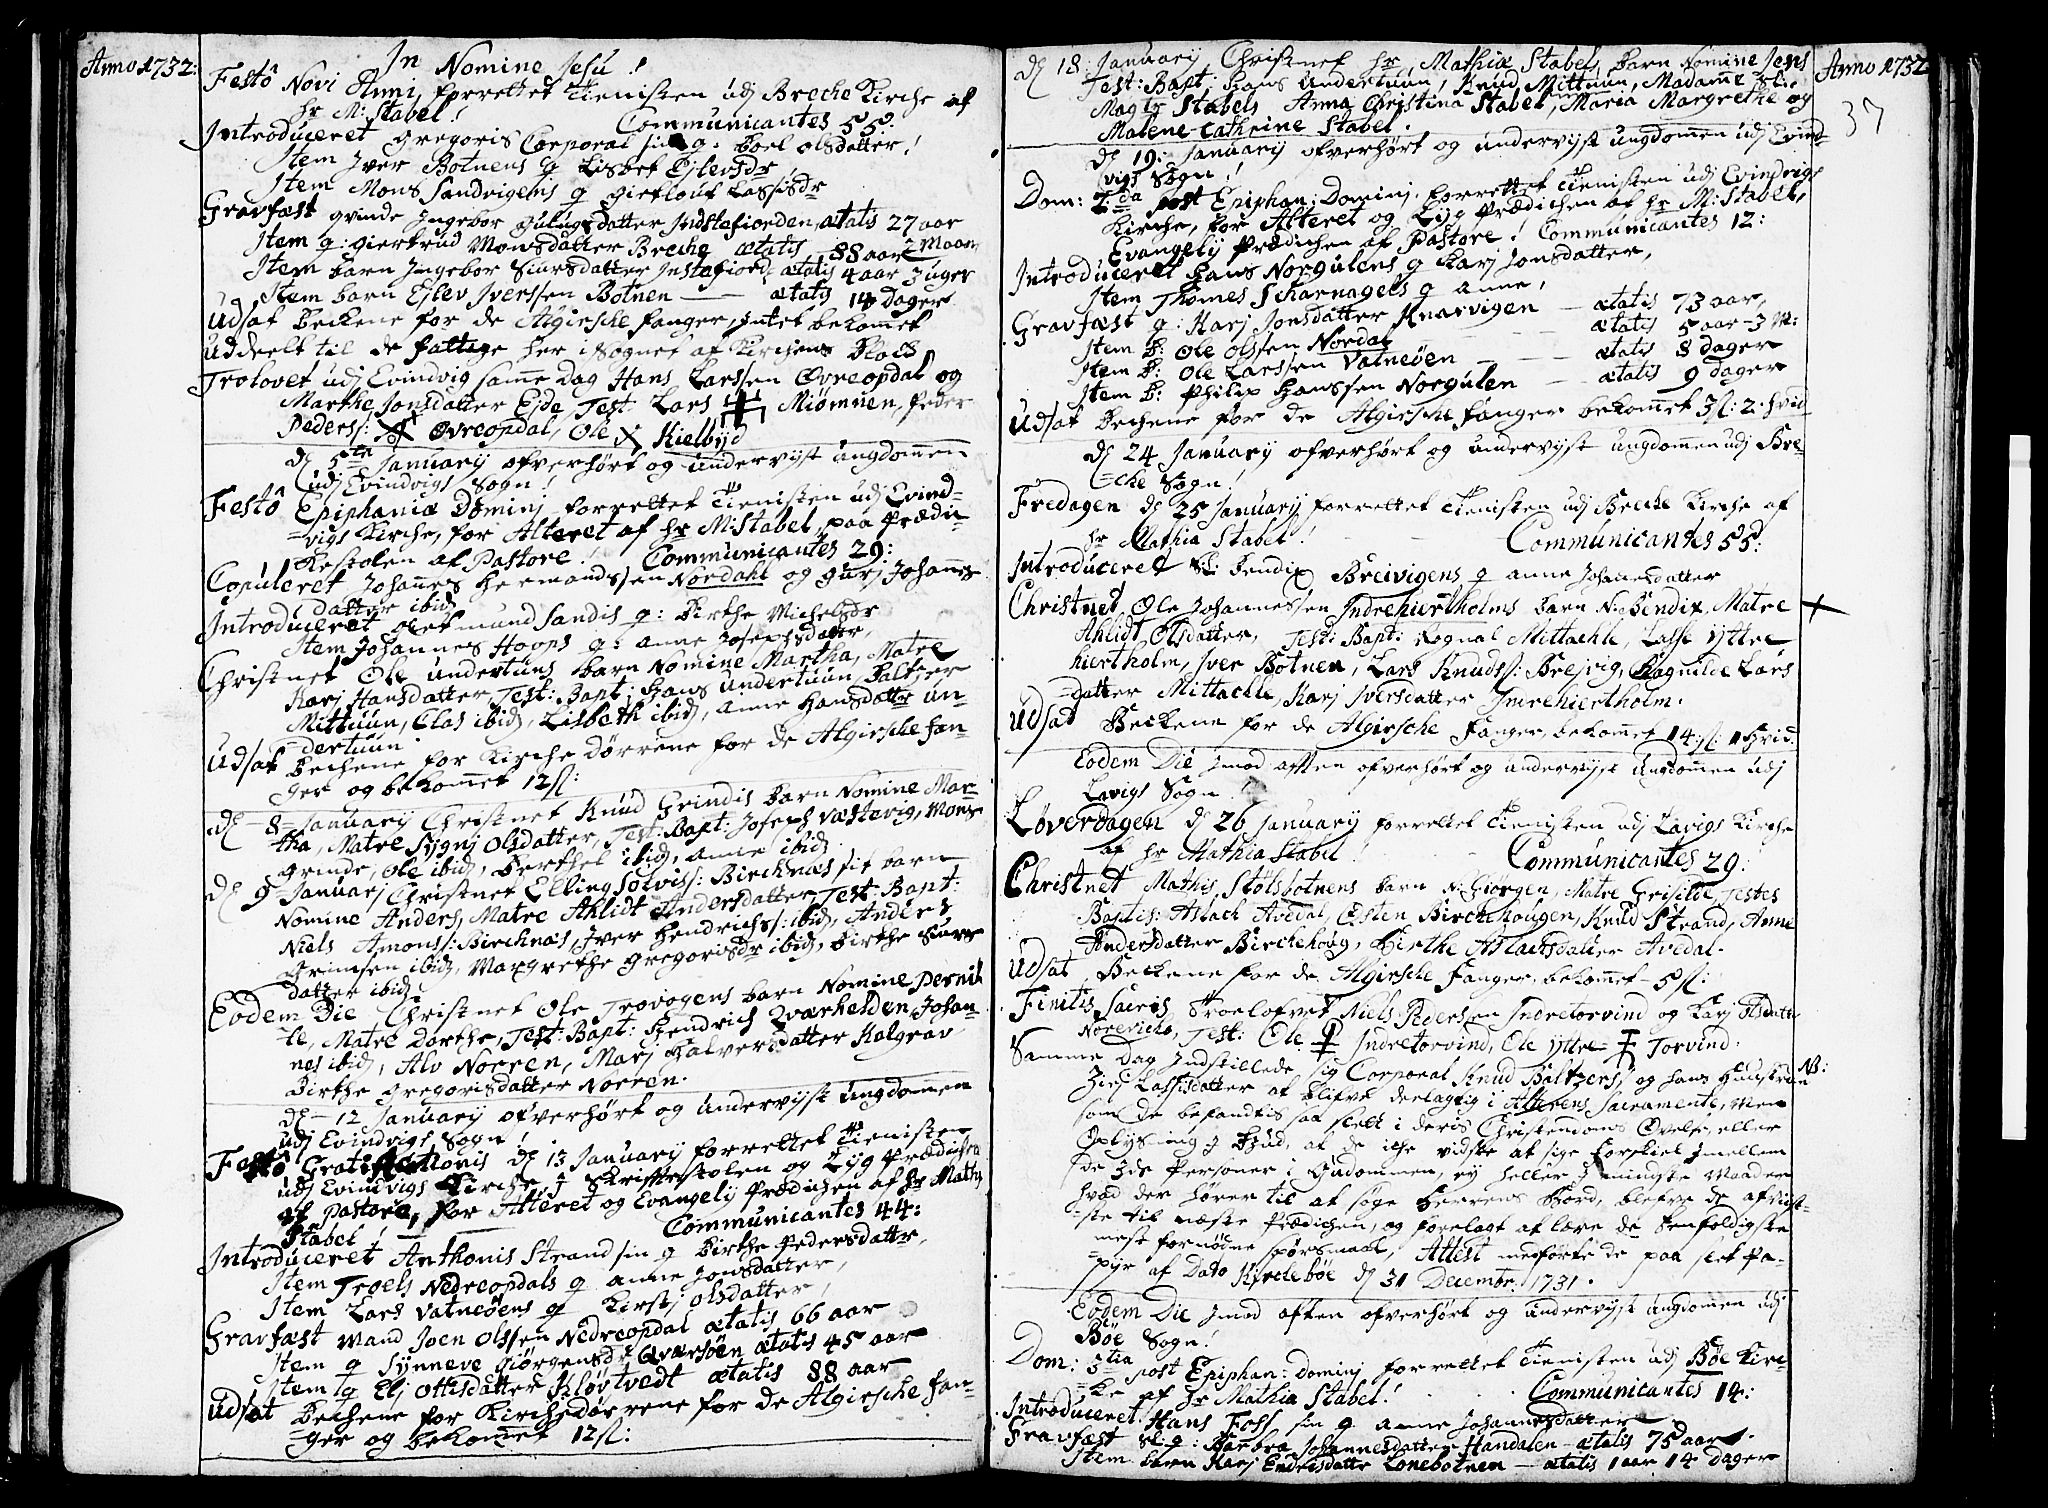 Anno 1732:
In Nomine Jesu!
Festô Novi Anni, forrettet Tienisten udj Breche Kirche af
hr M: Stabel! Communicantes 55:
Introduceret Gregoris Corporal sin q: Boel Olsdatter!
Item Iver Botnens q Lisbet Ejlevsdr
Item Mons Sandvigens q Giertlouf Lassisdr
Gravfæst qvinde Ingebor Gulugsdatter Indstefiorden, ætatis 27 aar
Item q: Giertrud Monsdatter Breche ætatis 88 aar 2 Maan
Item barn Ingebor Siursdatter Instefiord ætatis 4 aar 3 uger
Item barn Ejlev Iverssen Botnen — ætatis 14 dager
Udsat Beckene for de Algirsche fanger, intet bekomet
uddeelt til de fattige her i Sognet af Kirchens Block
Trolovet udj Evindvig same dag Hans Larssen Øvreopdal og
Marthe Jonsdatter Ejde, Test: Lars Miømuen, Peder
Peders: Øvreopdal, Ole Kielbyd
d 5te January ofverhørt og undervyst ungdomen
udj Evindvigs Sogn!
Festô Epiphaniæ Dominj forrettet Tienisten udj Evind-
vigs Kirche, for Alteret af hr M: Stabel, paa Prædi-
kestolen af Pastore! Communicantes 29:
Copuleret Johanes Hermandssen Nordahl og Gurj Johanes
datter ibid
Introduceret Olefmund Sandis q: Birthe Michelsdr
Item Johannes Hoops q: Anne Josephsdatter,
Christnet Ole Undertuns barn Nomine Martha, Matre
Karj Hansdatter, Test: Bapt: Hans Undertuun, Baltzer
Mittuun, Clas ibid, Lisbeth ibid, Anne Hansdatter Un-
dertuun
Udsat Bechene for Kirche dørrene for de Algirsche fan-
ger og bekomet 12 s:
d 8 January Christnet Knud Grindis barn Nomine Mar-
tha, Matre Sygnj Olsdatter, Test: Bapt: Joseph Væstevig, Mons
Grinde, Ole ibid, Berthel ibid, Anne ibid
d 9 Januarj Christnet Elling Solviss: Birchnæs sit barn
Nomine Anders, Matre Ahlidt Andersdatter, Test: Bapt:
Niels Amons: Birchnæs, Iver Hendrichs: ibid, Anders
Grimsen ibid, Margrethe Gregorisdr ibid, Birthe Siurs
datter ibid
Eodem Die Christnet Ole Trovogens barn Nomine Pernil-
le, Matre Dorthe, Test: Bapt: Hendrich Qværhelden, Johan-
nes ibid, Alv Norren, Marj Halversdatter Kalgrav
Birthe Gregorisdatter Norren.
d 12 January ofverhørt og undervyst ungdomen
udj Evindvigs Sogn!
Festô d 13 January forrettet Tienisten
udj Evindvigs Kirche, i Skriftestolen og Lyg Prædichen
af Pastore, for Alteret og Evangely Prædichen af hr Mathi
Stabel! Communicantes 44:
Introduceret Anthonis Strand sin q Birthe Pedersdatter,
Item Troels Nedreopdals q Anne Jonsdatter,
Item Lars Vatneöens q Kirstj Olsdatter,
Gravfæst Mand Joen Olssen Nedreopdal ætatis 66 aar
Item q Synneve Giørgensdr Qværsöen ætatis 45 aar
Item q Elj Ottisdatter Kløvtvedt ætatis 88 aar
Udsat Bechene for Kirchedørrene for de Algirsche fan-
ger og bekomet 12 s:
Anno 1732
37
d 18 January Christnet hr Mathiæ Stabel, barn Nomine Jens
Test: Bapt: Hans Undertuun, Knud Mittuun, Madame
Magr Stabel, Anna Christina Stabel, Maria Margrethe og
Malene Cathrine Stabel.
d 19: January ofverhørt og undervyst ungdomen udj Evind-
vigs Sogn!
Dom: 2da post Epiphan: Dominj, forrettet Tienisten udj Evindvigs
Kirche, for Alteret og Lyg Prædichen af hr M: Stabel,
Evangely Prædichen af Pastore! Communicantes 12:
Introduceret Hans Norgulens q Karj Jonsdatter,
Item Thomes Scharnagels q Anne,
Gravfæst q: Karj Jonsdatter Knarvigen — ætatis 73 aar,
Item B: Ole Olssen Nordal ætatis 5 aar 3 M:
Item B: Ole Larssen Vatneöen — ætatis 8 dager
Item B: Philip Hanssen Norgulen — ætatis 9 dager
Udsat Bechene for de Algirsche fanger bekomet 3 s: 2 hvid
d 24 January ofverhørt og undervyst ungdomen udj Bre-
che Sogn!
Fredagen d 25 January forrettet Tienisten udj Breche Kirche af
hr Mathia Stabel! Communicantes 55:
Introduceret Bendix Breivigens q Anne Johanesdatter
Christnet Ole Johannessen Indrehiertholms barn N: Bendix, Matre
Ahlidt Olsdatter, Test: Bapt: Rognal Mittachle, Lasse Yttre
hiertholm, Iver Botnen, Lars Knuds: Brejvig, Ragnilde Lars
datter Mittachle, Karj Iversdatter Inrehiertholm.
Udsat Beckene for de Algirsche fanger, bekomet 14 s: 1 hvid:
Eodem Die Imod aften ofverhørt og undervyst ungdomen udj
Lavigs Sogn!
Løverdagen d 26 January forrettet Tienisten udj Lavigs Kirche
af hr Mathia Stabel! Communicantes 29:
Christnet Mathis Stølsbotnens barn N: Giørgen, Matre Grisilde, Testes
Baptis: Aslach Avedal, Østen Birchehougen, Knud Strand, Anne
Andersdatter Birchehoug, Birthe Aslachsdatter Avedal.
Udsat Beckene for de Algirsche fanger, bekomet 5 s:
Finitis Sacris, Troelofvet Niels Pederssen Indretorvind og Karj Olsdatter
Norevich, Test: Ole Indretorvind, Ole Yttre Torvind.
Samme dag Indstillede sig Corporal Knud Baltzers: og hans Hustrue NB:
Zirj Lassisdatter at blifve delagtig i Alterens Sacramente, Men
som de befandtis saa slett i deris Christendoms Øvelse, eller
Oplysning i Gud, at de iche vidste at sige forskiel imellem
de 3de Personer i Gudommen, ey heller i mingste Maader
hvad der hører til at søge Herrens Bord, blefve de afvist-
ste til næste Prædichen, og forelagt at lære de Eenfoldigste
mest fornødne spørsmaal, Attest medførte de paa slet Pa-
pyr af Dato Kyrchebøe d 31 Decembr: 1731.
Eodem Die Imod aften ofverhørt og undervyst ungdomen udj
Böe Sogn!
Dom: 3tia post Epiphan: Dominj forrettet Tienisten udj Böe Kir-
ke af hr Mathia Stabel! Communicantes 14:
Introduceret Hans Foss sin q Anne Johannesdatter
Gravfæst q: Barbra Johannesdatter Handalen ætatis 75 aar.
Item barn Karj Endrisdatter Lonebotnen — ætatis 1 aar 14 dager